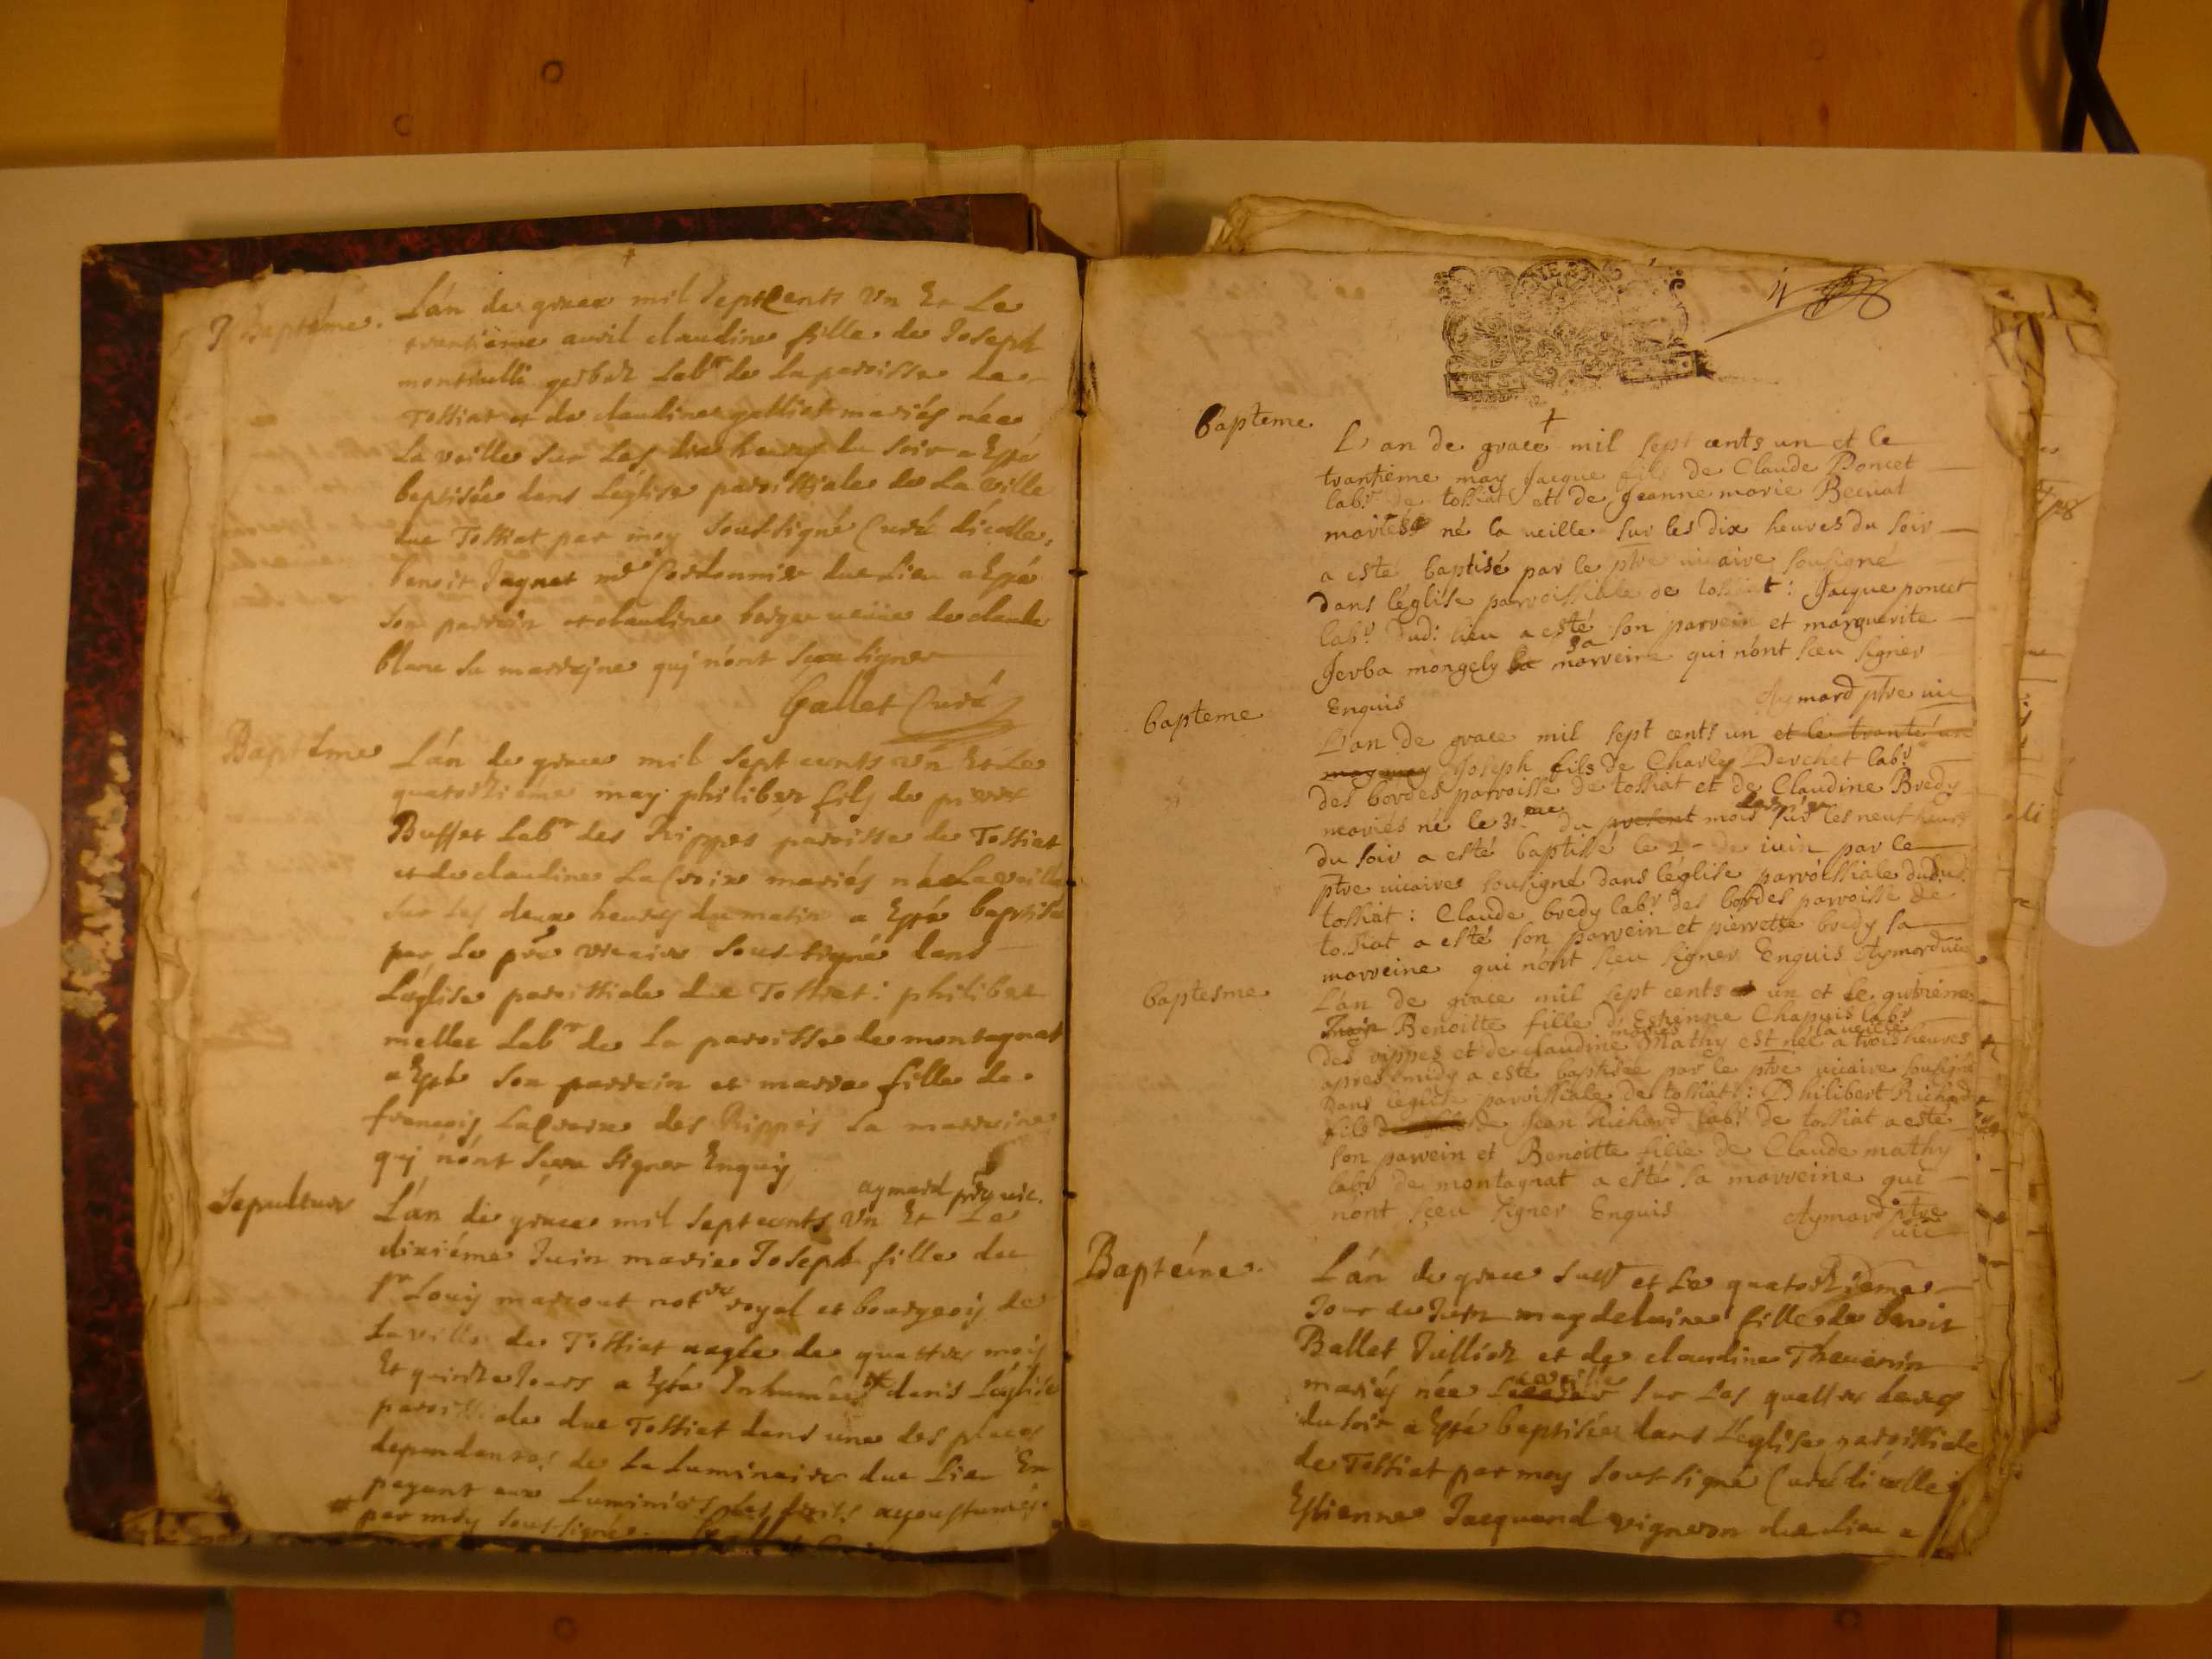 Baptéme.
Lán de grace mil septCents Vn Et Le
trentiéme avril claudine fille de Joseph
montiulli gerbaz Labr de La paroisse de
Tossiat et de claudine galliet mariés née
La veille sur Les dix heures du soir a Esté
baptisée dans Léglise paroissiale de La ville
due Tossiat par moy Soussigné Curé dicelle,
benoit Jagnet md Cordonnier due Lieu a Esté
son parrin et claudine berger veuue de claude
blanc sa marrejne quj nónt sceu signer
Gallet Curé
Baptéme
Lán de grace mil sept cents vn Et Le
quatorziéme may philiber filz de pierre
Buffet Labr des Rippes paroisse de Tossiat
et de claudine LaCroix mariés né La veille
sur Les deux heures du matin a Esté baptisé
par Le ptre vicaire Soussigné dans
Léglise paroissiale due Tossiat: philiber
mellet Labr de La paroisse de montagnat
a Esté son parrein et marie fille de
francois LaCroix des Rippes sa marreine
quj nónt sceu signer Enquis
aymard ptre vic.
Sepulture
Lán de grace mil septcents Vn Et Le
dixiéme Juin marie Joseph fille du
Sr Louis marcout notre royal et bourgeois de
La ville de Tossiat aagée de quattre mois
Et quinze Jours a Esté Inhumée dans Léglise
paroissiale due Tossiat dans une des places
dependentes de La Luminaire due Lieu En
payant aux Luminiers Les droits accoustumés.
par moy soussigné
bapteme
L'an de grace mil sept cents un et le
trantieme may Jacque fils de Claude Poncet
labr de tossiat ett de Jeanne marie Becuat
mariés né la ueille sur les dix heures du soir
a esté baptisé par le ptre uicaire sousigné
dans léglise parroissiale de tossiat: Jacque poncet
labr dud: lieu a esté son parrein et marguerite
Jerba mongely sa marreine qui nónt sceu signer
Enquis
Aymard ptre uic
bapteme
L'an de grace mil sept cents un et le tranté un
may may Joseph fils de Charles Perchet labr
des bordes parroisse de tossiat et de Claudine Bredy
mariés né le 31me du present mois dernier sur les neuf heures
du soir a esté baptissé le 2 de iuin par le
ptre uicaire sousigné dans léglise parroissiale dud:
tossiat: Claude bredy labr des bordes parroisse de
tossiat a esté son parrein et pierrette bredy sa
marreine qui nónt sceu signer Enquis Aymard uic
baptesme
L'an de grace mil sept cents et un et le
Juin Benoitte fille d'Estienne Chapuis labr
des rippes et de claudine Mathy mariés est née la ueille a trois heures
apres midy a esté baptisée par le ptre uicaire sousigné
dans léglise parroissiale de tossiat: Philibert Richard
fils de Jean Richard labr de tossiat a esté
son parrein et Benoitte fille de Claude mathy
labr de montagnat a esté sa marreine qui
nont sceu signer Enquis
Aymard ptre
uic
Baptéme.
Lán de grace susd et Le quatorziéme
Jour de Juin magdeleine fille de benoit
Ballet Jullior et de claudine Theuenin
mariés née La veille sur Les quattre heures
du soir a Esté baptisée dans Léglise paroissiale
de Tossiat par moy Soussigné Curé dicelle
Estienne Jacquand vigneron due Lieu a